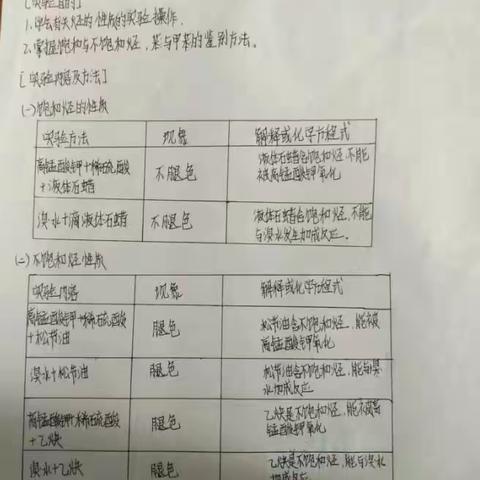 [实验目的]
1.学会有关烃的性质的实验操作.
2.掌握饱和与不饱和烃,苯与甲苯的鉴别方法。
[实验内容及方法]
(一)饱和烃的性质
实验方法 现象 解释或化学方程式
高锰酸钾+稀硫酸 不腿色 液体石蜡含饱和烃,不能
+液体石蜡 被高锰酸钾氧化
溴水+滴液体石蜡 不腿色 液体石蜡含饱和烃,不能
与溴水发生加成反应。
(二)不饱和烃性质
实验内容 现象 解释或化学方程式
高锰酸钾+稀硫酸 腿色 松节油含不饱和烃,能被
+松节油 高锰酸钾氧化
溴水+松节油 腿色 松节油含不饱和烃,能与溴
水加成反应
高锰酸钾+稀硫酸 腿色 乙炔是不饱和烃,能被高
+乙炔 锰酸钾氧化
溴水+乙炔 腿色 乙炔是不饱和烃,能与溴水
加成反应